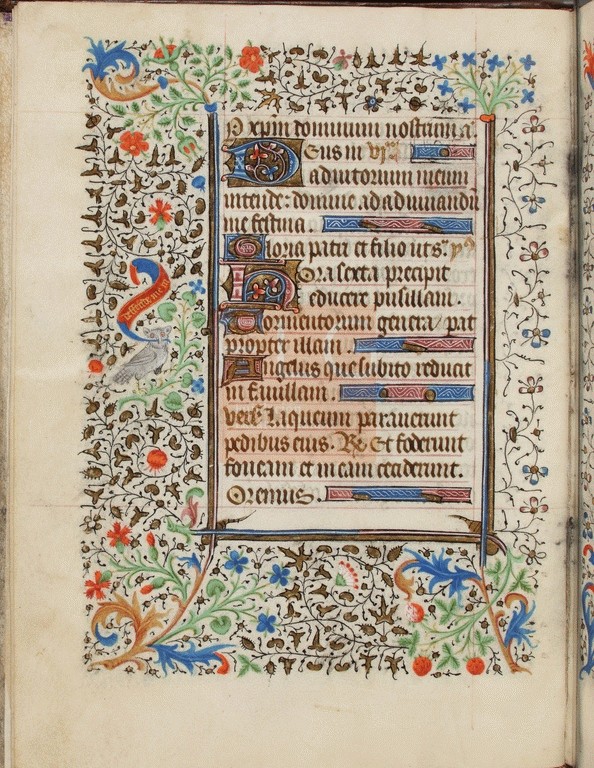 P xpm dominum nostrum a.
Deus in
adiutorium meum
intende: domine ad adiuuandū
me festina.
Gloria patri et filio
Hora sexta precipit
educere pusillam.
Tormentorum genera pat
propter illam.
Angelus que subito reducit
in fauillam.
Laqueum parauerunt
pedibus eius. Rx Et foderunt
foueam et in eam ceciderunt.
Oremus.